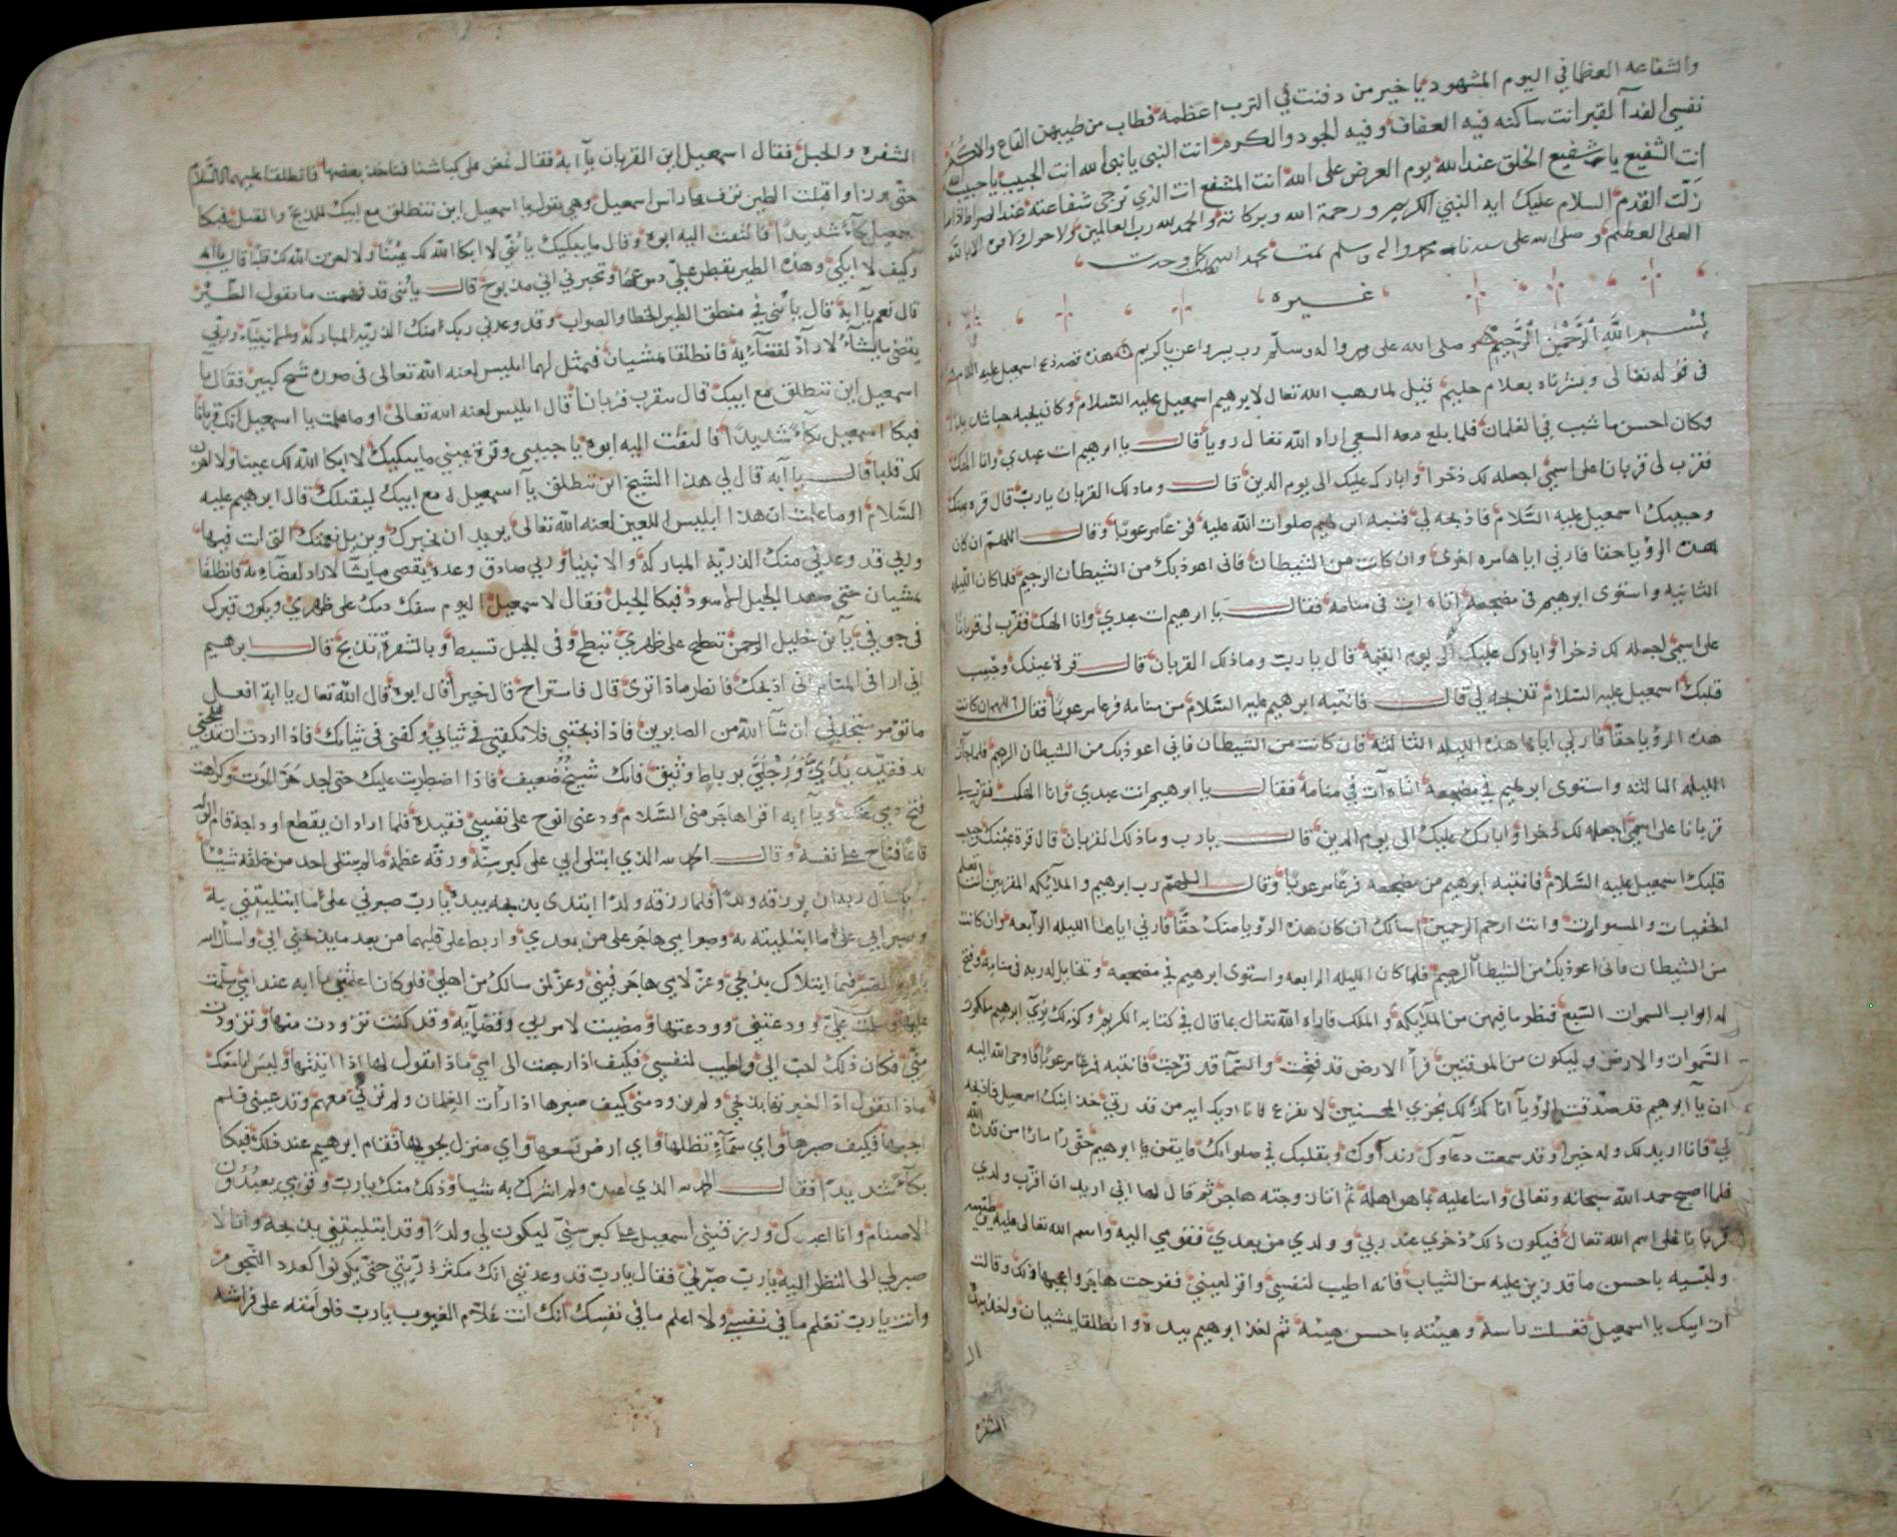 والشفاعه العظما في اليوم المشهود يا خير من دفنت في الترب اعظمه فطاب من طيبهن القاع والاكم
نفسي الفدآ لقبر انت ساكنه فيه العفاف وفيه الجود والكرم انت النبي يا نبي الله انت الحبيب يا حبيب الله
انت الشفيع يا شفيع الخلق عند الله يوم العرض على الله انت المشفع انت الذي ترجى شفاعته عند الصراط اذا ما
زلت القدم السلام عليك ايه النبي الكريم ورحمة الله وبركاته والحمد لله رب العالمين ولا حول ولا قوة الا بالله
العلي العظيم وصلى الله على سيدنا محمد واله وسلم تمت بحمد الله
غيره
بسم الله الرحمن الرحيم وصلى الله على محمد واله وسلم رب يسر واعن يا كريم هذه قصة ذبح اسمعيل عليه السلام
في قوله تعالى وبشرناه بغلام حليم قيل لما وهب الله تعالى لابرهيم اسمعيل عليه السلام وكان يحبه حبا شديدا
وكان احسن ما شب في الغلمان فلما بلغ معه السعي اراه الله تعالى رويا قال يا ابرهيم انت عبدي وانا الهك
فقرب لي قربانا على اسمي اجعله لك ذخرا وابارك عليك الى يوم الدين قال وما ذلك القربان يارب قال قره عينك
وحبيبك اسمعيل عليه السلام فاذبحه لي فنبه ابرهيم صلوات الله عليه فزعا مرعوبا وقال اللهم ان كان
هذه الرؤيا حقا فارني اياها مره اخرى وان كانت من الشيطان فاني اعوذ بك من الشيطان الرجيم فلما كان الليله
الثانيه واستوى ابرهيم في مضجعه اتاه ات في منامه فقال يا ابرهيم انت عبدي وانا الهك فقرب لي قربانا
على اسمي اجعله لك ذخرا وابارك عليك الى يوم القيمة قال يا ربت وما ذلك القربان قال قرة عينك وحبيب
قلبك اسمعيل عليه السلام تذبحه لي قال فانتبه ابرهيم عليه السلام من منامه فزعا مرعوبا فقال اللهم ان كانت
هذه الرؤيا حقا فارني اياها هذه الليله الثالثه فان كانت من الشيطان فاني اعوذ بك من الشيطان الرجيم فلما كان
الليله الثالثه واستوى ابرهيم في مضجعه اتاه آت في منامه فقال يا ابرهيم انت عبدي وانا الهك فقرب لي
قربانا على اسمي اجعله لك ذخرا وابارك عليك الى يوم الدين قال يارب وما ذلك القربان قال قرة عينك وحبيب
قلبك اسمعيل عليه السلام فانتبه ابرهيم من مضجعه فزعا مرعوبا وقال اللهم رب ابرهيم والملائكه المقربين انت تعلم
الخفيات وانت ارحم الرحمين اسالك ان كان هذه الرؤيا منك حقا فارني اياها الليله الرابعه وان كانت
من الشيطان فاني اعوذ بك من الشيطان الرجيم فلما كان الليله الرابعه واستوى ابرهيم في مضجعه وتخايل له ربه في منامه وفتح
له ابواب السموات السبع فنظر ما فيهن من الملآيكه والملك فاراه الله تعالى بما قال في كتابه الكريم وكذلك نري ابرهيم ملكوت
السموات والارض وليكون من الموقنين فرأ الارض قد فتحت والسمآ قد فرجت فانتبه فزعا مرعوبا فاوحى الله اليه
ان يآ ابرهيم قد صدقت الرؤيآ انا كذلك نجزي المحسنين لا تفزع فانا اريك ايه من قدرتي خذ ابنك اسمعيل فاذبحه
لي فانا اريد لك وله خيرا وقد سمعت دعآوك وندآوك وتقلبك في صلواتك
فلما اصبح حمد الله سبحانه وتعالى واثنا عليه بما هو اهله ثم اتا زوجته هاجر ثم قال لها اني اريد ان اقرب ولدي
قربانا على اسم الله تعالى فيكون ذلك ذخري عند ربي وولدي من بعدي فقومي اليه واسم الله تعالى عليه طيبيه
ولبسيه باحسن ما قدرتين عليه من الثياب فانه اطيب لنفسي واقر لعيني ففرحت هاجر واعجبها ذلك وقالت
ات ابيك يا اسمعيل فغسلت راسه وهيئته باحسن هيئه ثم اخذ ابرهيم بيده وانطلقا يمشيان واخذ بيده
الشفره
الشفره والحبل فقال اسمعيل اين القربان يآ ابه فقال نمض على كباشنا فناخذ بعضها فانطلقا عليهما السلام
حتى برزا واقبلت الطير ترف على راس اسمعيل وهي تقول يا اسمعيل اين تنطلق مع ابيك للذبح والقتل فبكا
اسمعيل بكآء شديدا فالتفت اليه ابوه وقال ما يبكيك يا بني لا ابكا الله لك عينا ولا احزن الله لك قلبا قال يا ابه
وكيف لا ابكي وهذه الطير يقطر علي دموعها وتخبرني اني مذبوح قال يا بني قد فهمت ما تقول الطير
قال نعم يآ ابة قال يا بني في منطق الطير الخطا والصواب وقد وعدني ربك منك الذريه المباركه والانبياء وربي
يقضي ما يشآء لا رآد لقضآئه فانطلقا يمشيان فتمثل لهما ابليس لعنه الله تعالى في صورة شيخ كبير فقال يآ
اسمعيل اين تنطلق مع ابيك قال نتقرب قربانا قال ابليس لعنه الله تعالى او ما علمت يا اسمعيل انك قربانا
فبكا اسمعيل بكآء شديدا فالتفت اليه ابوه يا حبيبي وقرة عيني ما يبكيك لا ابكا الله لك عينا ولا احزن
لك قلبا قال يا ابه قال لي هذا الشيخ اين تنطلق يآ اسمعيل مع ابيك ليقتلك قال ابرهيم عليه
السلام او ما علمت ان هذا ابليس اللعين لعنه الله تعالى يريد ان يخبرك ويزيل نعمتك التي انت فيها
وربي قد وعدني منك الذريه المباركه والانبيآ وربي صادق وعده يقضي ما يشآ لا راد لقضآءه فانطلقا
يمشيان حتى صعدا الجبل الاسود فبكا الجبل فقال لاسمعيل اليوم سفك دمك على ظهري ويكون قبرك
في جوفي يآ بن خليل الرحمن تطلع على ظهري تبطح وفي الحبل تسبط وبالشفرة تذبح قال ابرهيم
اني ارا في المنام اني اذبحك فانظر ماذا ترى قال فاستراح قال خيرا قال ابوه قال الله تعالى يا ابة افعل
ما تؤمر ستجدني ان شآ الله من الصابرين فاذا ذبحتني فلا تكفني في ثيابي وكفني في ثيابك فاذا اردت ان تذبحني
فقيد يدي ورجلي برباط وثيق فانك شيخ ضعيف فاذا اضطربت عليك حتى اجد حر الموت وكراهته
يآ ابه اقرا هاجر مني السلام ودعني انوح على نفسي فقيده فلما اراد ان يقطع اوداجه قام
قآعا فناح على نفسه وقال الحمد لله الذي ابتلى ابي على كبر سنه ورقه عظمه ما لم يبتلي احد من خلقه شيئا
ان يرزقه ولدا فلما رزقه ولدا ابتدى بذبحه بيده يا رب صبرني على ما ابتليتني به
وصبر ابي على ما ابتليته به وصبر امي هاجر على من بعدي واربط على قلبهما من بعد ما يذبحني ابي واسال الله
الصبر فيما ابتلاك بذبحي وعز لامي هاجر فيني وعز لمن سالك من اهلي فلو كان اعلمتني يا ابه عند امي سلمت
عليها وسلمت علي وودعتني وودعتها ومضيت لامر ربي وقضآيه وقد كنت تزودت منها وتزودت
مني فكان ذلك احب الي واطيب لنفسي فكيف اذا رجعت الى امي ماذا تقول لها
ماذا تقول اذا اخبرتها بذبحي ولم تزودمني كيف صبرها اذا رأت الغلمان ولم ترني معهم وقد عيني فلم
اجبها فكيف صبرها واي سمآء تظلها واي ارض تسعها واي منزل يحويها فقام ابرهيم عند ذلك فبكا
بكآء شديدا فقال الحمد لله الذي اعبد ولم اشرك به شيا وذلك منك يارب وقومي يعبدون
الاصنام وانا اعبدك ورزقتني اسمعيل على كبر سني ليكون لي ولدا وقد ابتليتني بذبحه وانا لا
صبر لي الى النظر اليه يا رب صبرني فقال يا رب قد وعدتني انك مكثر ذريتي حتى يكونوا كعدد النجوم
وانت يا رب تعلم ما في نفسي ولا اعلم ما في نفسك انك انت علآم الغيوب يا رب فلو امته على فراشه